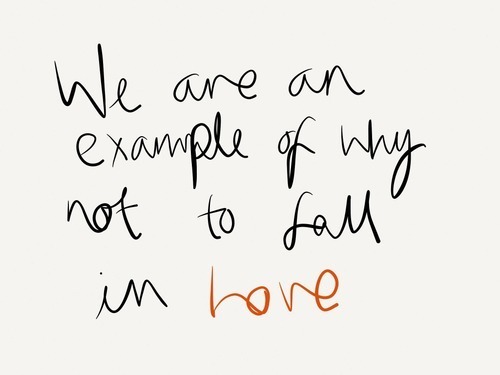 We are an
example of why
not to fall
in Love